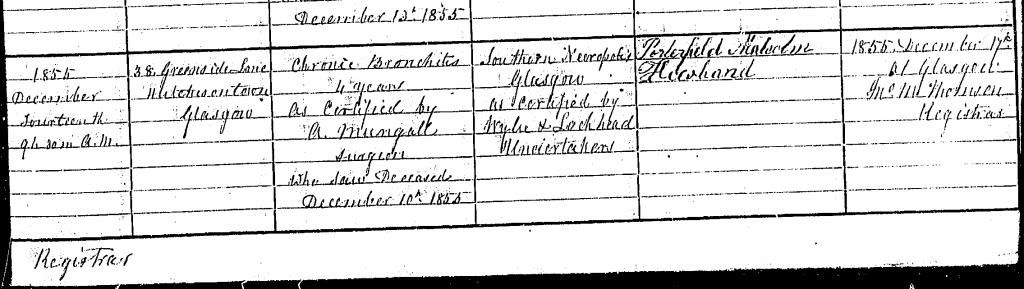 December 12th 1855
1855
December
Fourteenth
9h 30m A.M.
38 Greenside Lane
Hutchesontown
Glasgow
Chronic Bronchitis
4 years
As Certified by
A. Mungall
Surgeon
Who saw Deceased
December 10th 1855
Southern Necropolis
Glasgow
as certified by
Wylie & Lochhead
Undertakers
Porterfield Malcolm
Husband
1855, December 17th
At Glasgow
Registrar
Registrar